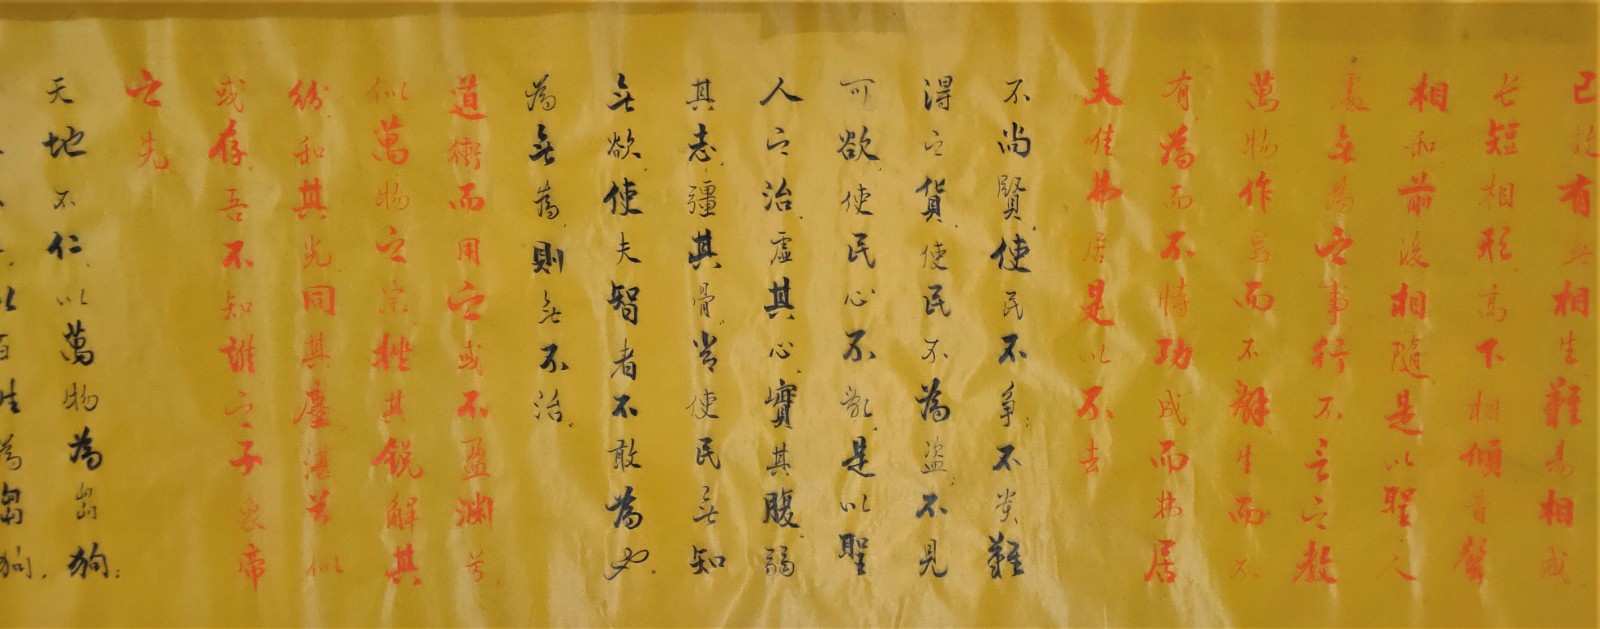 已故有無相生難易相成
長短相形高下相傾音聲
相和前後相隨是以聖人
處無為之事行不言之教
萬物作焉而不辭生而不
有為而不恃功成而弗居
夫唯弗居是以不去
不尚賢使民不爭；不貴難
得之貨，使民不為盜，不見
可欲，使民心不亂，是以聖
人之治，虛其心，實其腹，弱
其志，彊其骨，常使民無知
無欲，使夫智者不敢為也。
為無為，則無不治。
道衝而用之或不盈淵兮，
似萬物之宗，挫其銳解其
紛，和其光同其塵。湛兮似
或存，吾不知誰之子象帝
之先
天地不仁，以萬物為芻狗；
以百姓為芻狗，